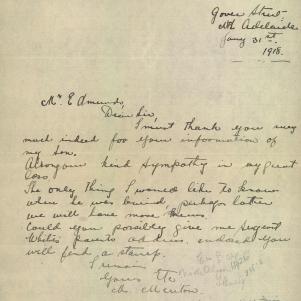 Gover Street
Nth Adelaide
Jany 31st.
1918.
Mr. Edmunds,
Dear Sir,
I must thank you very
much indeed for your information of
my son.
Also your kind sympathy in my great
Loss!
The only thing I would like to know
when he was buried, perhaps later
we will have more news.
Could you possibly give me Sergent
White's parents address. enclosed you
will find a stamp.
I remain
Yours tr